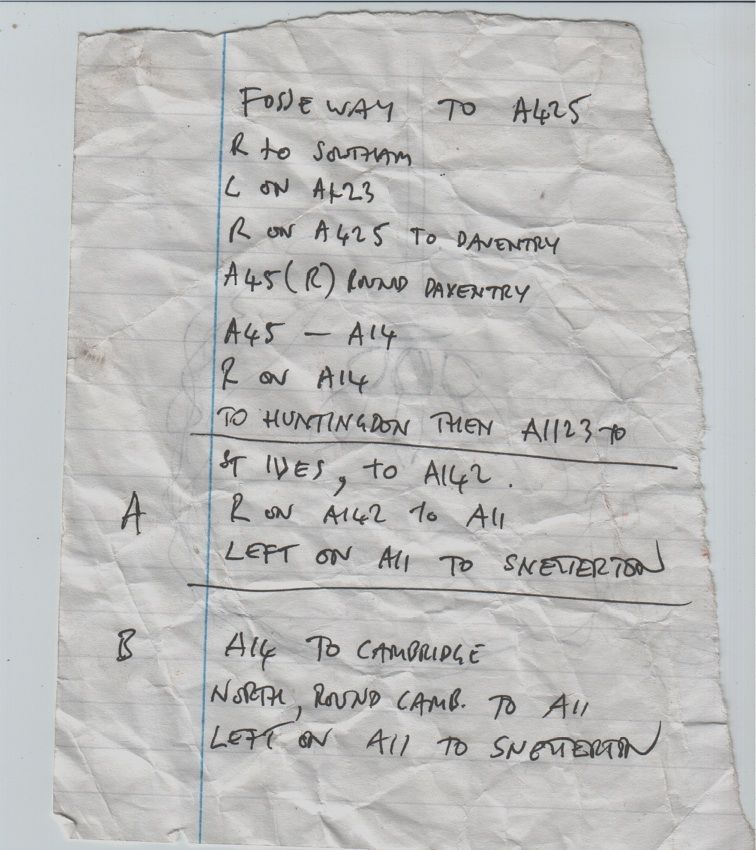 FOSSE WAY TO A425
R to SOUTHAM
L ON A423
R ON A425 TO DAVENTRY
A45 (R) ROUND DAVENTRY
A45 — A14
R ON A14
TO HUNTINGDON THEN A1123 TO
ST IVES, TO A142.
A R ON A142 to A11
LEFT ON A11 TO SNETTERTON
B A14 TO CAMBRIDGE
NORTH, ROUND CAMB. TO A11
LEFT ON A11 TO SNETTERTON